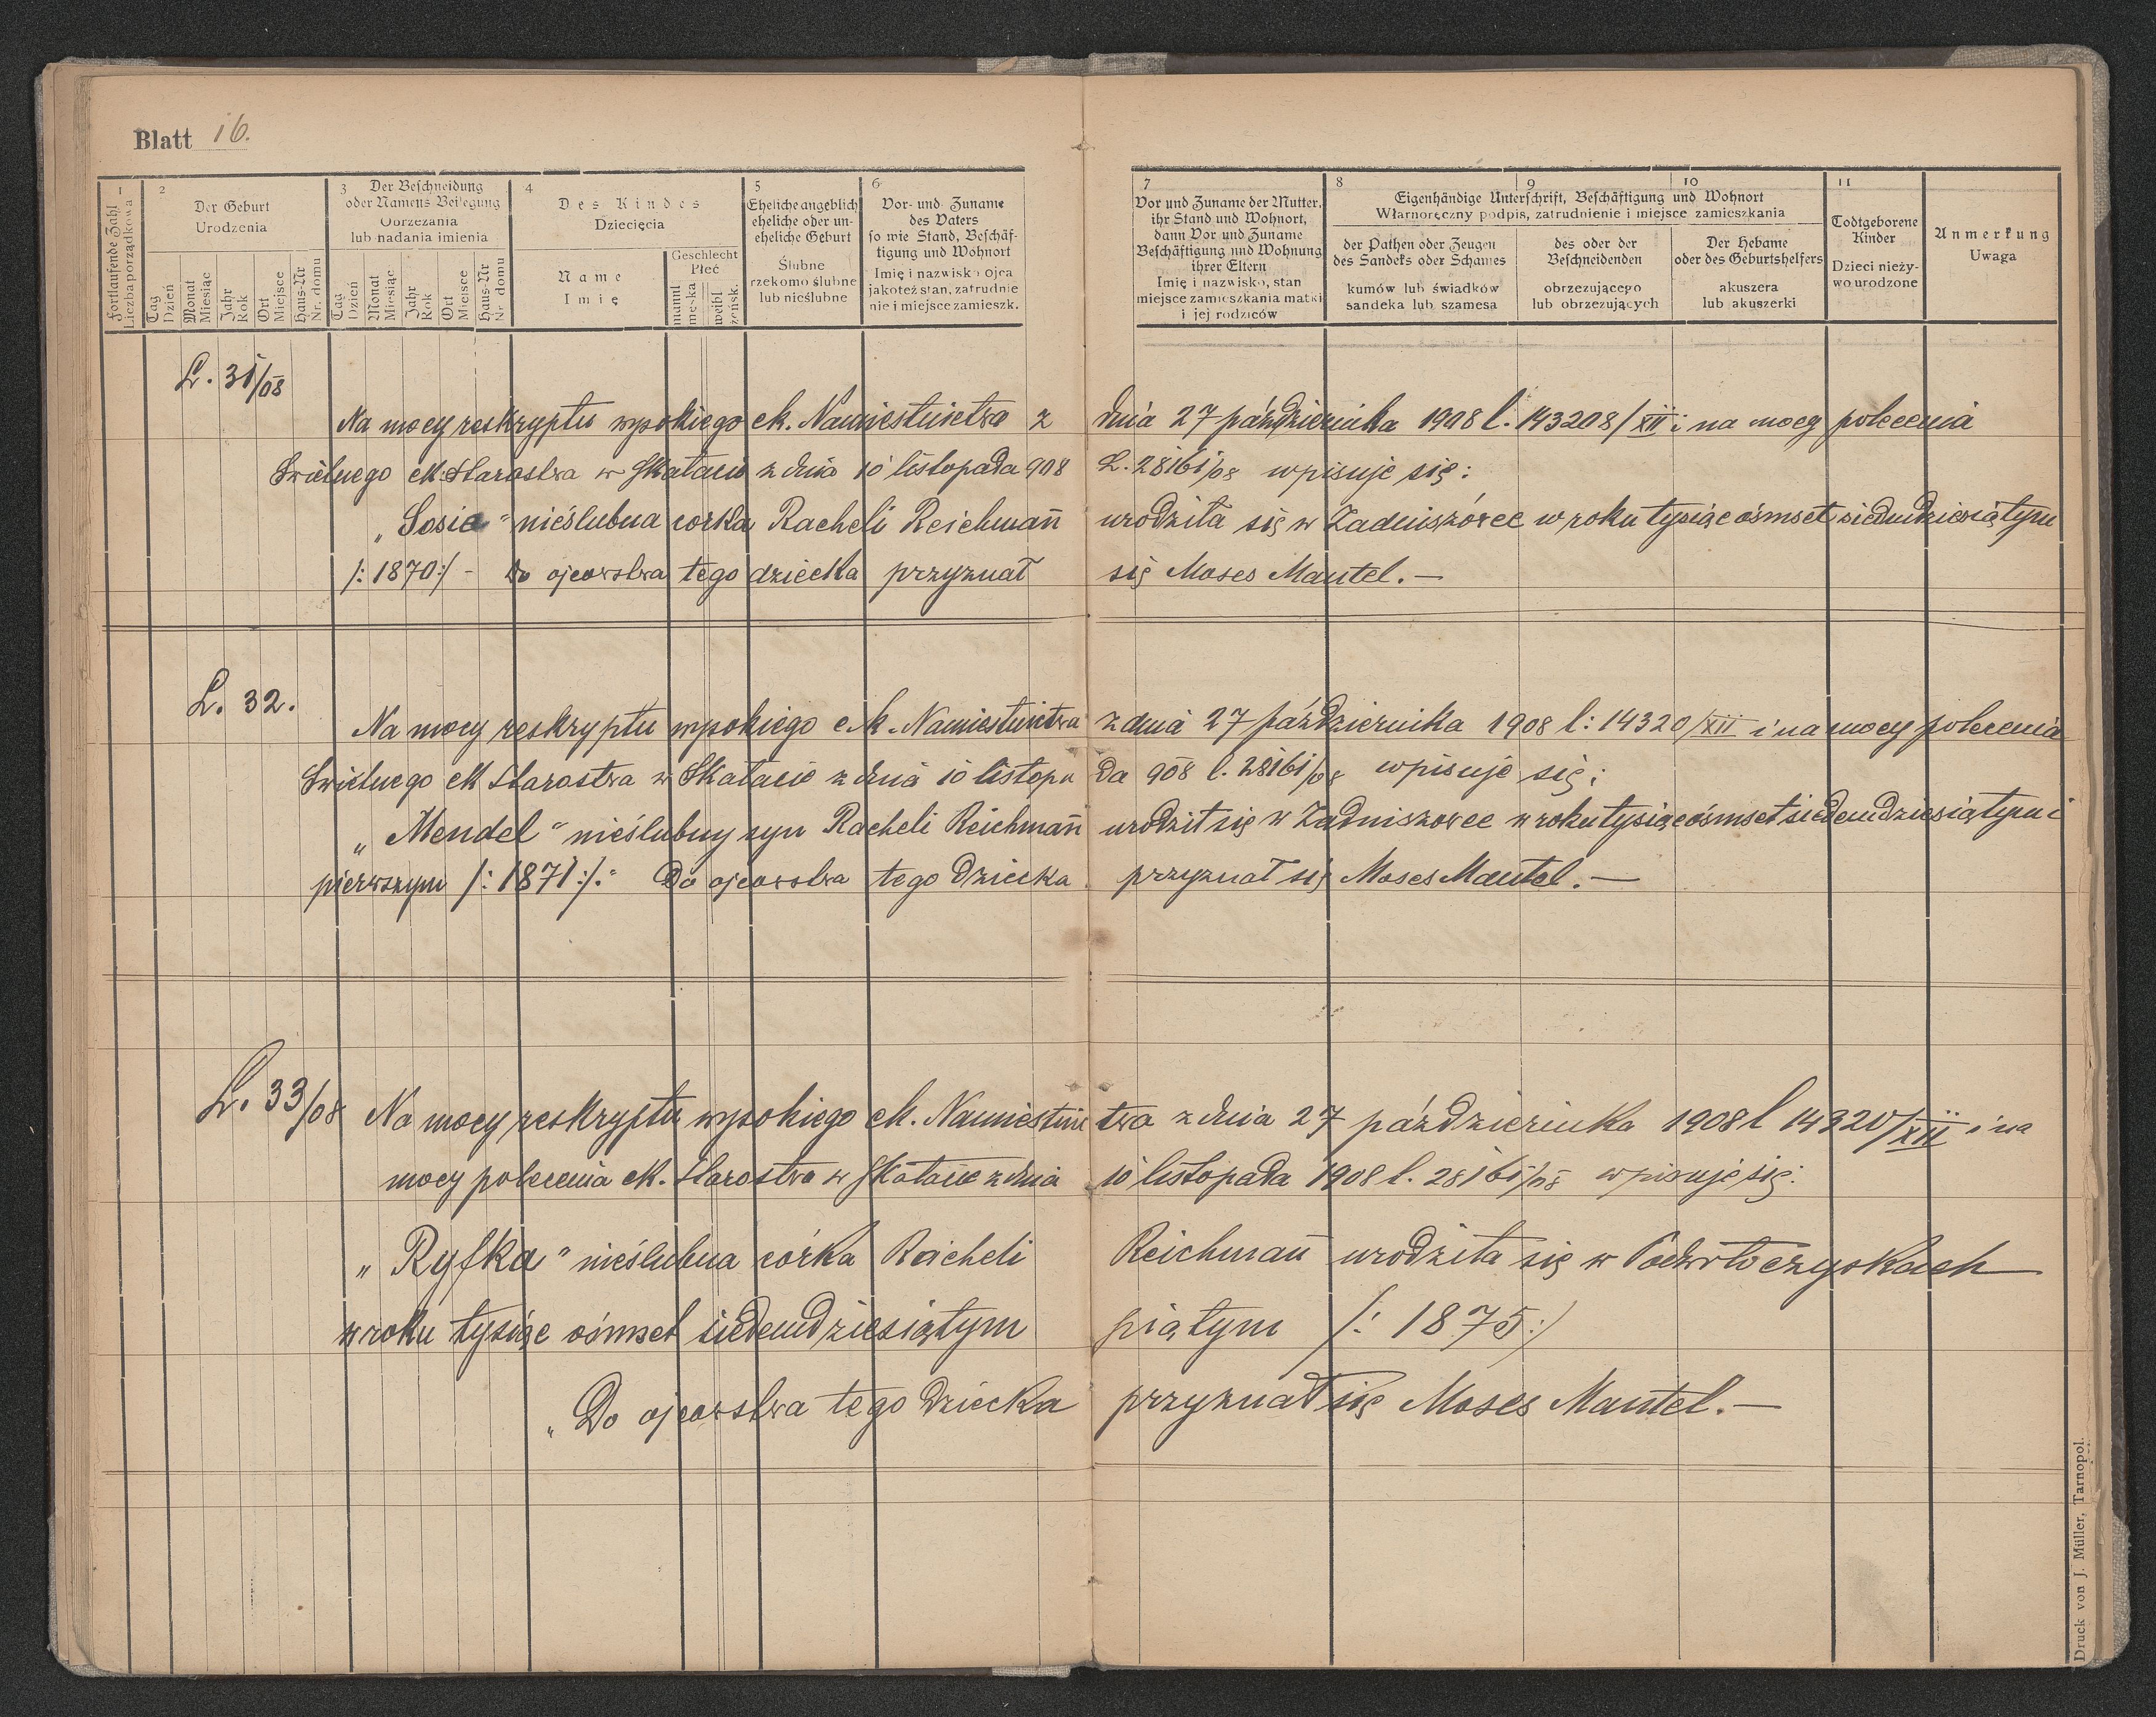 Blatt 16.
1
Fortlaufende Zahl
Liczba porządkowa
2
Der Geburt
Urodzenia
Tag
Dzień
Monat
Miesiąc
Jahr
Rok
Ort
Miejsce
Haus-Nr
Nr. domu
3
Der Beschneidung
oder Namens Beilegung
Obrzezania
lub nadania imienia
Tag
Dzień
Monat
Miesiąc
Jahr
Rok
Ort
Miejsce
Haus-Nr
Nr. domu
4
Des Kindes
Dziecięcia
Name
Imię
Geschlecht
Płeć
männl
męska
weibl
żeńsk.
5
Eheliche angeblich
eheliche oder un-
eheliche Geburt
Ślubne
rzekomo ślubne
lub nieślubne
6
Vor- und Zuname
des Vaters
so wie Stand, Beschäf-
tigung und Wohnort
Imię i nazwisko ojca
jakoteż stan, zatrudnie
nie i miejsce zamieszk.
7
Vor und Zuname der Mutter,
ihr Stand und Wohnort,
dann Vor und Zuname
Beschäftigung und Wohnung
ihrer Eltern
Imię i nazwisko, stan
miejsce zamieszkania matki
i jej rodziców
8
9
10
Eigenhändige Unterschrift, Beschäftigung und Wohnort
Własnoręczny podpis, zatrudnienie i miejsce zamieszkania
der Pathen oder Zeugen
des Sandeks oder Schames
kumów lub świadków
sandeka lub szamesa
des oder der
Beschneidenden
obrzezującego
lub obrzezujących
Der Hebame
oder des Geburtshelfers
akuszera
lub akuszerki
11
Todtgeborene
Kinder
Dzieci nieży-
wo urodzone
Anmerkung
Uwaga
L. 31/08
Na mocy reskryptu wysokiego ck. Namiestnictwa z dnia 27 października 1908 l. 143208/XII i na mocy polecenia
Świetnego ck Starostwa w Skałacie z dnia 10 listopada 908 L. 28161/08 wpisuje się:
„Sosie" nieślubna corka Racheli Reichmañ urodziła się w Zadniszówce w roku tysiąc ośmset siedmdziesiątym
/: 1870 :/ - Do ojcowstwa tego dziecka przyznał się Moses Mantel. —
L. 32.
Na mocy reskryptu wysokiego ck. Namiestnictwa z dnia 27 października 1908 l: 14320/XII i na mocy polecenia
Świetnego ck Starostwa w Skałacie z dnia 10 listopa da 908 l. 28161/08 wpisuje się:
„Mendel" nieślubny syn Racheli Reichmañ urodził się w Zadniszowce w roku tysiąc ośmset siedemdziesiątym i
pierwszym /: 1871 :/." Do ojcowstwa tego dziecka przyznał się Moses Mantel. —
L. 33/08 Na mocy reskryptu wysokiego ck. Namiestnic twa z dnia 27 października 1908 l 14320/XII i na
mocy polecenia ck. Starostwa w Skałacie z dnia 10 listopada 1908 l. 28161/08 wpisuje się:
„Ryfka" nieślubna córka Racheli Reichmañ urodziła się w Podwołoczyskach
w roku tysiąc ośmset siedemdziesiątym piątym /: 1875 :/
„Do ojcowstwa tego dziecka przyznał się Moses Mantel. —
Druck von J. Müller, Tarnopol.